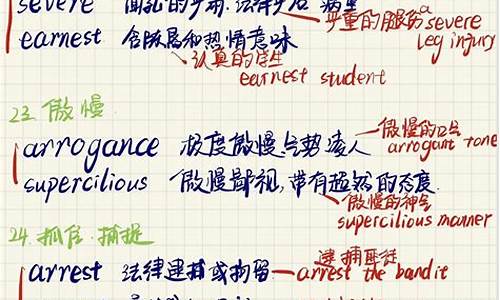 severe
严重的腿伤 a severe leg injury
earnest 含
和热情意味
认真的学生
earnest student
23. 傲慢
arrogance 极度傲慢,气势凌人
傲慢的口气
arrogant tone
supercilious 傲慢鄙视,带有超然的态度
傲慢的神气
supercilious manner
24. 抓住.捕捉
arrest 法律逮捕或拘留
逮捕匪徒
arrest the bandit